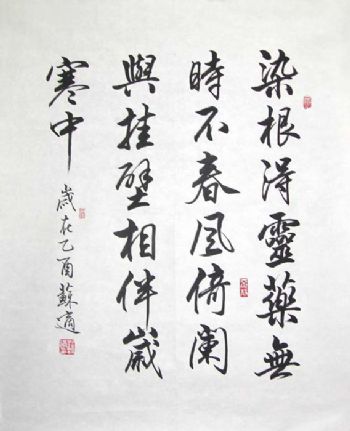 染根得靈藥無
時不春風倚闌
與挂壁相伴嵗
寒中
歲在乙酉蘇適